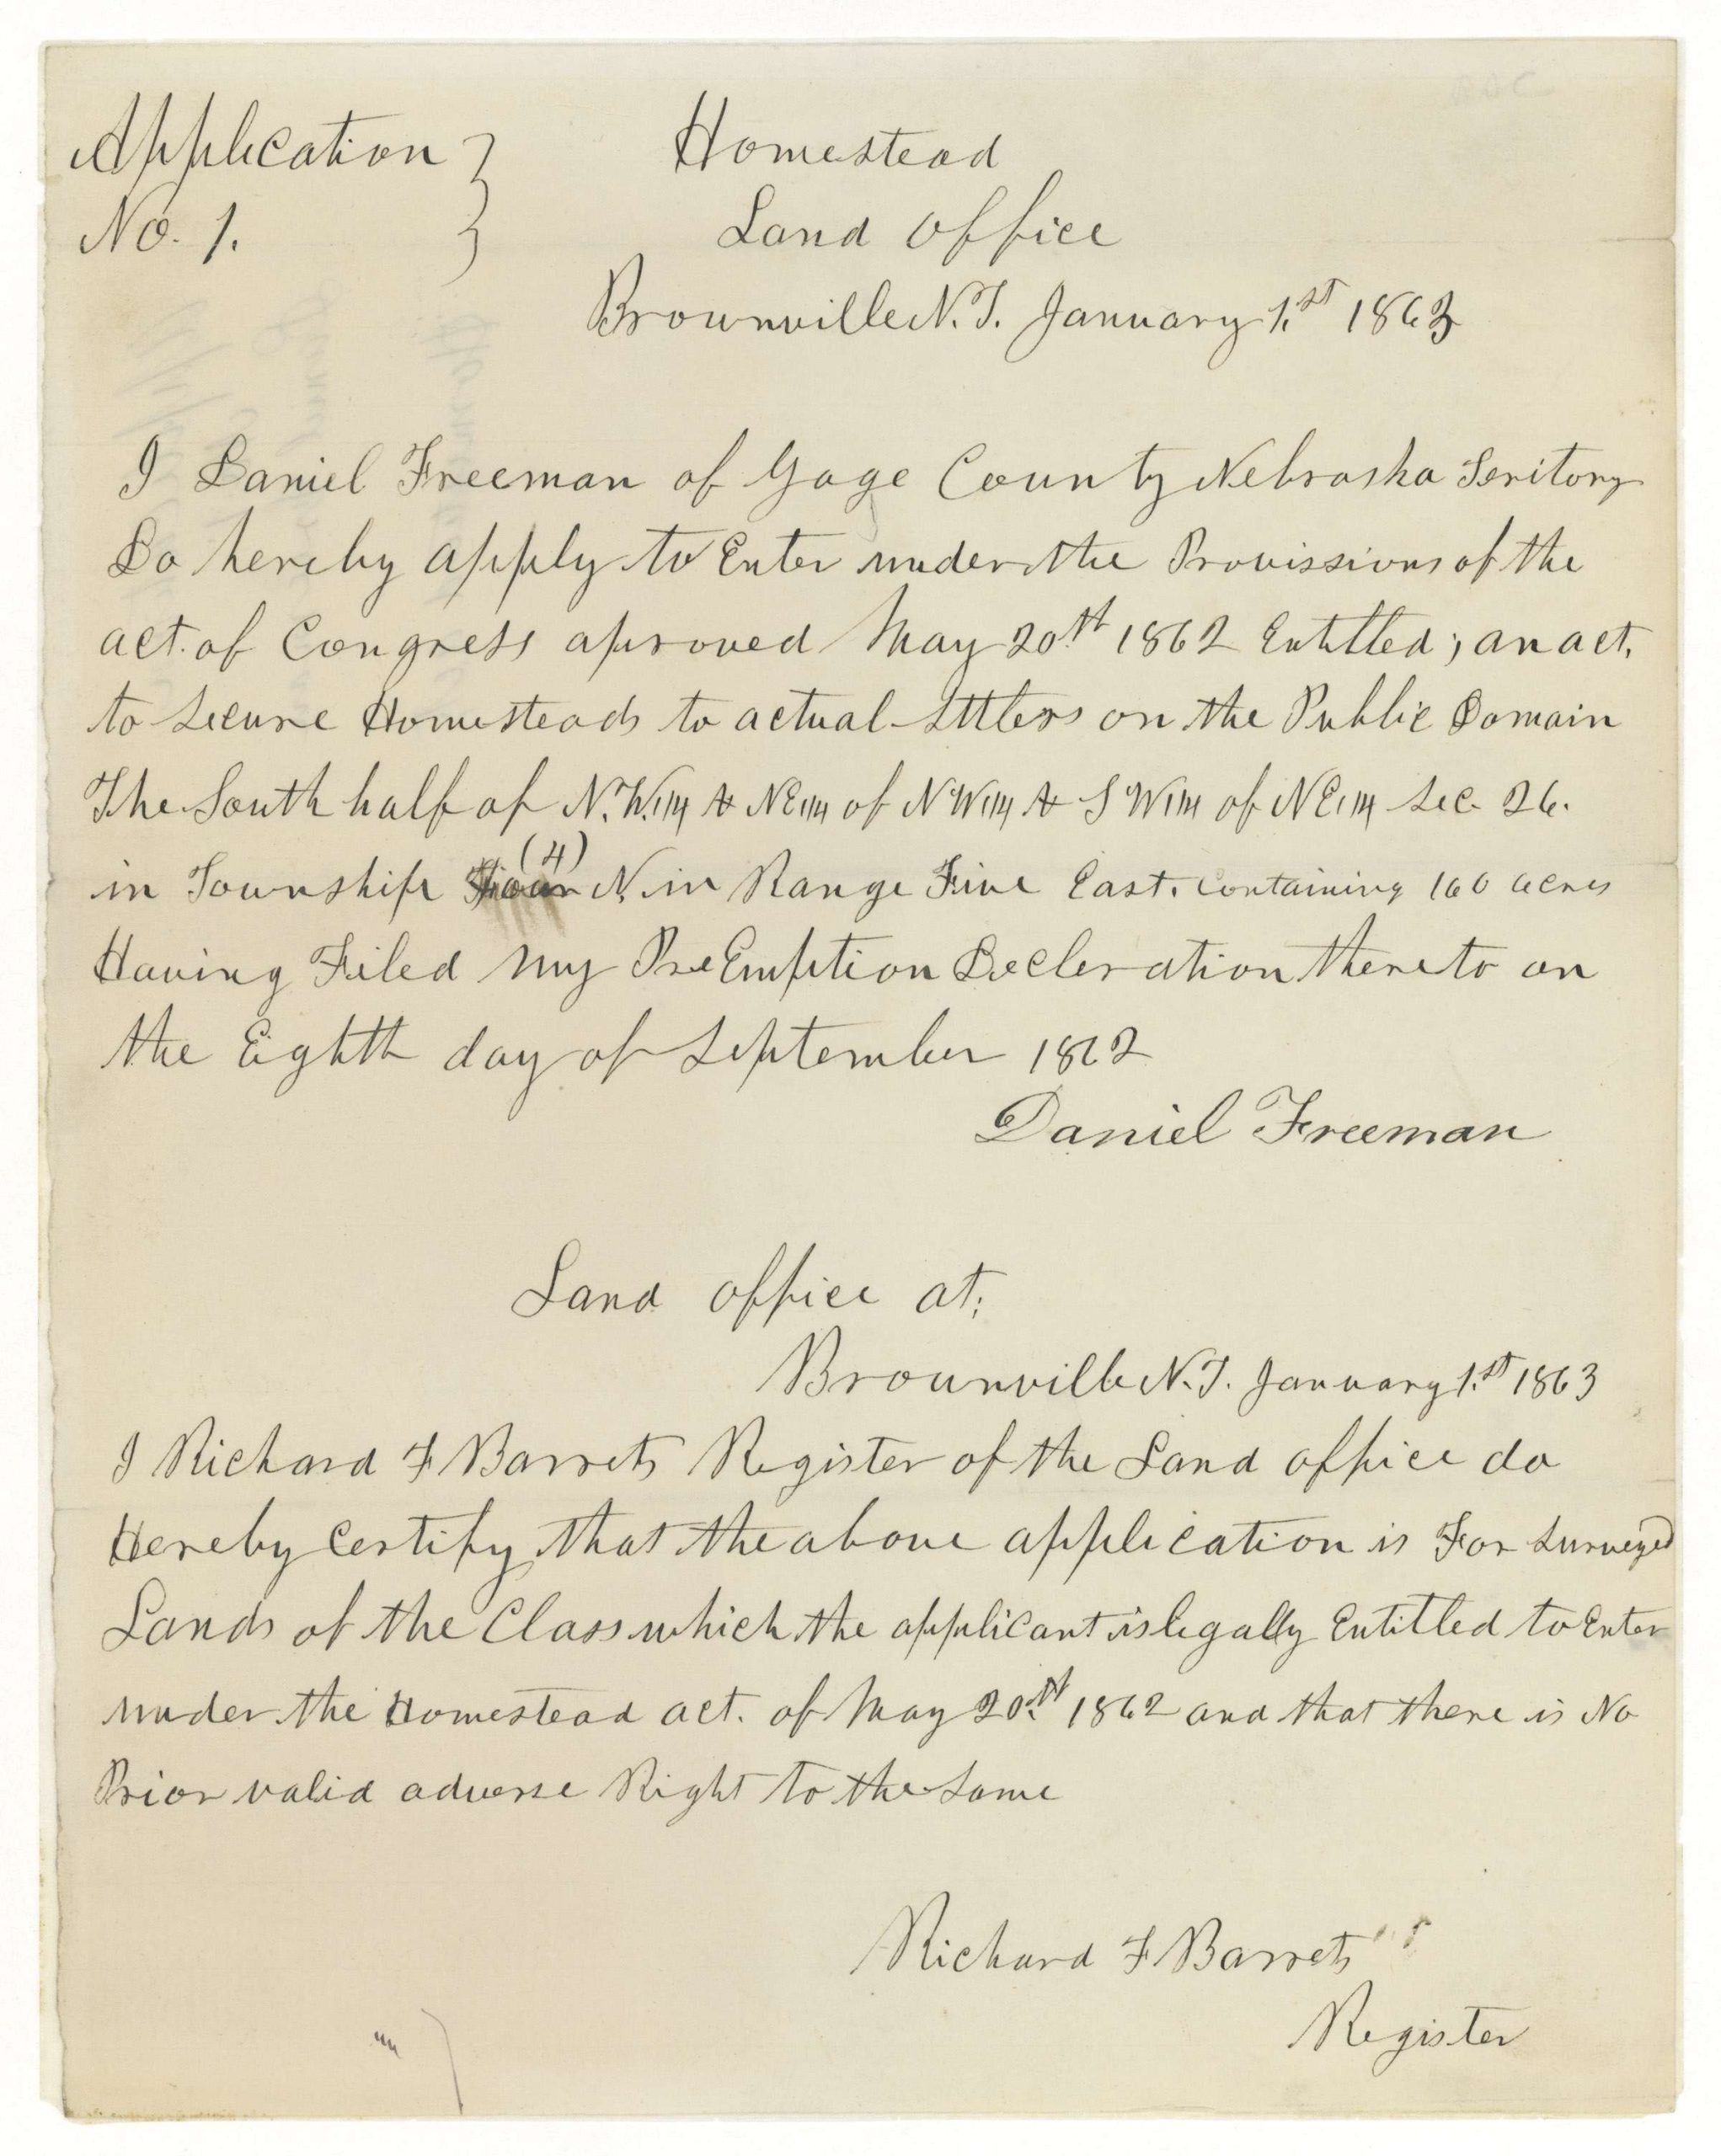 Application
No. 1.
Homestead
Land office
Brownville N.T. January 1.st 1863
I Daniel Freeman of Gage County Nebraska Teritory
Do hereby apply to Enter under the Provissions of the
act. of Congress aproved May 20th 1862 Entitled; an act.
to Secure Homesteads to actual Settlers on the Public Domain
The South half of N.W.1/4 & NE1/4 of NW1/4 & SW1/4 of NE1/4 Sec. 26.
(4)
in Township Four N. in Range Five East. containing 160 acres
Having Filed my Pre Emption Decleration thereto on
the Eighth day of September 1862
Daniel Freeman
Land office at;
Brownville N.T. January 1.st 1863
I Richard F Barrets Register of the Land office do
Hereby Certify that the above application is For Surveyed
Lands of the Class which the applicant is legally Entitled to Enter
under the Homestead act. of May 20th 1862 and that there is No
Prior valid adverse Right to the Same
Richard F Barrets
Register